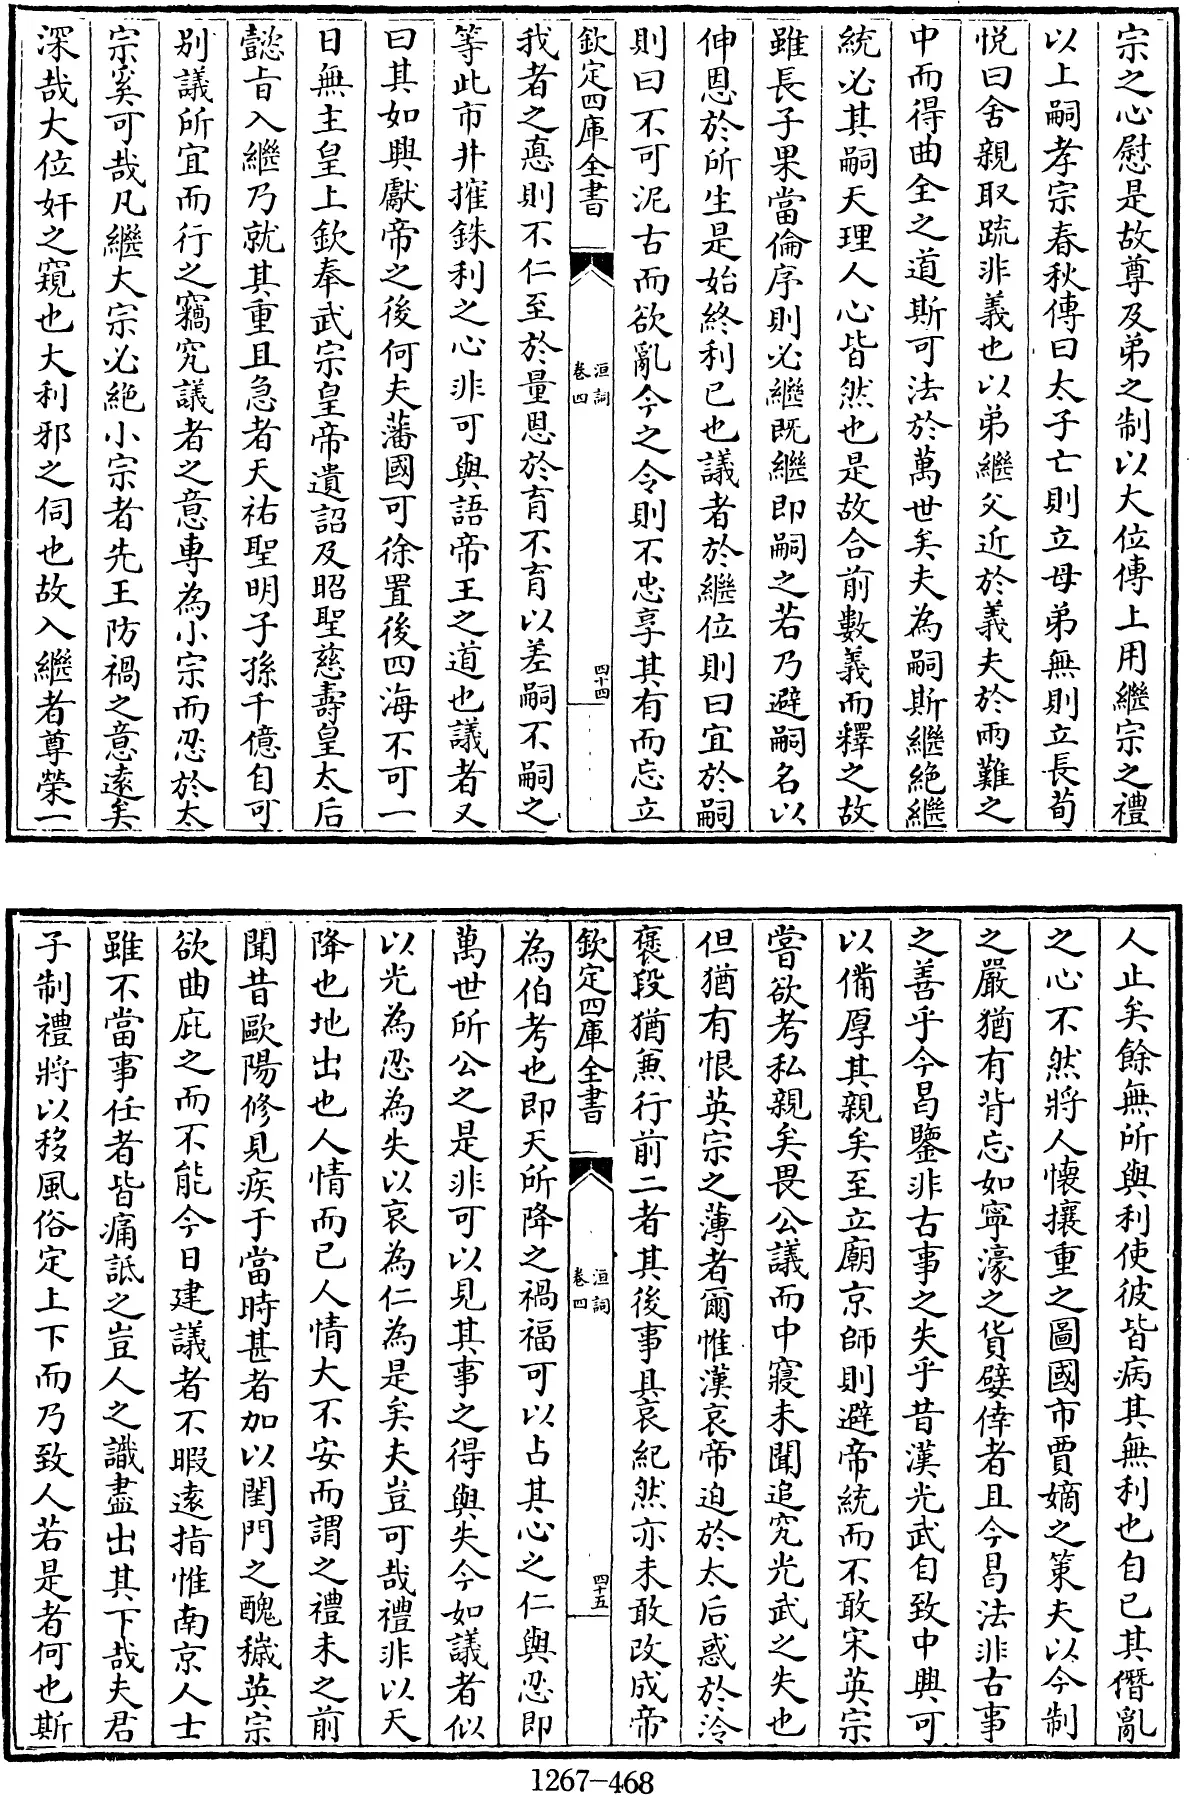 宗之心慰是故尊及弟之制以大位傳上用繼宗之禮
以上嗣孝宗春秋傳曰太子亡則立母弟無則立長荀
悦曰舍親取疏非義也以弟繼父近於義夫於兩難之
中而得曲全之道斯可法於萬世矣夫為嗣斯繼絶繼
統必其嗣天理人心皆然也是故合前數義而釋之故
雖長子果當倫序則必繼既繼即嗣之若乃避嗣名以
伸恩於所生是始終利已也議者於繼位則曰宜於嗣
則曰不可泥古而欲亂今之令則不忠享其有而忘立
欽定四庫全書
洹詞
卷四
四十四
我者之悳則不仁至於量恩於育不育以差嗣不嗣之
等此市井搉銖利之心非可與語帝王之道也議者又
曰其如興獻帝之後何夫藩國可徐置後四海不可一
日無主皇上欽奉武宗皇帝遺詔及昭聖慈壽皇太后
懿㫖入繼乃就其重且急者天祐聖明子孫千億自可
别議所宜而行之竊究議者之意專為小宗而忍於太
宗奚可哉凡繼大宗必絶小宗者先王防禍之意逺矣
深哉大位奸之窺也大利邪之伺也故入繼者尊榮一
人止矣餘無所與利使彼皆病其無利也自已其僭亂
之心不然將人懐攘重之圖國市賈嫡之策夫以今制
之嚴猶有背忘如寧濠之貨嬖倖者且今曷法非古事
之善乎今曷鑒非古事之失乎昔漢光武自致中興可
以備厚其親矣至立廟京師則避帝統而不敢宋英宗
嘗欲考私親矣畏公議而中寢未聞追究光武之失也
但猶有恨英宗之薄者爾惟漢哀帝迫於太后惑於泠
褒段猶兼行前二者其後事具哀紀然亦未敢改成帝
欽定四庫全書
洹詞
卷四
四十五
為伯考也即天所降之禍福可以占其心之仁與忍即
萬世所公之是非可以見其事之得與失今如議者似
以光為忍為失以哀為仁為是矣夫豈可哉禮非以天
降也地出也人情而已人情大不安而謂之禮未之前
聞昔歐陽修見疾于當時甚者加以閨門之醜穢英宗
欲曲庇之而不能今日建議者不暇逺指惟南京人士
雖不當事任者皆痛詆之豈人之識盡出其下哉夫君
子制禮將以移風俗定上下而乃致人若是者何也斯
1267-468